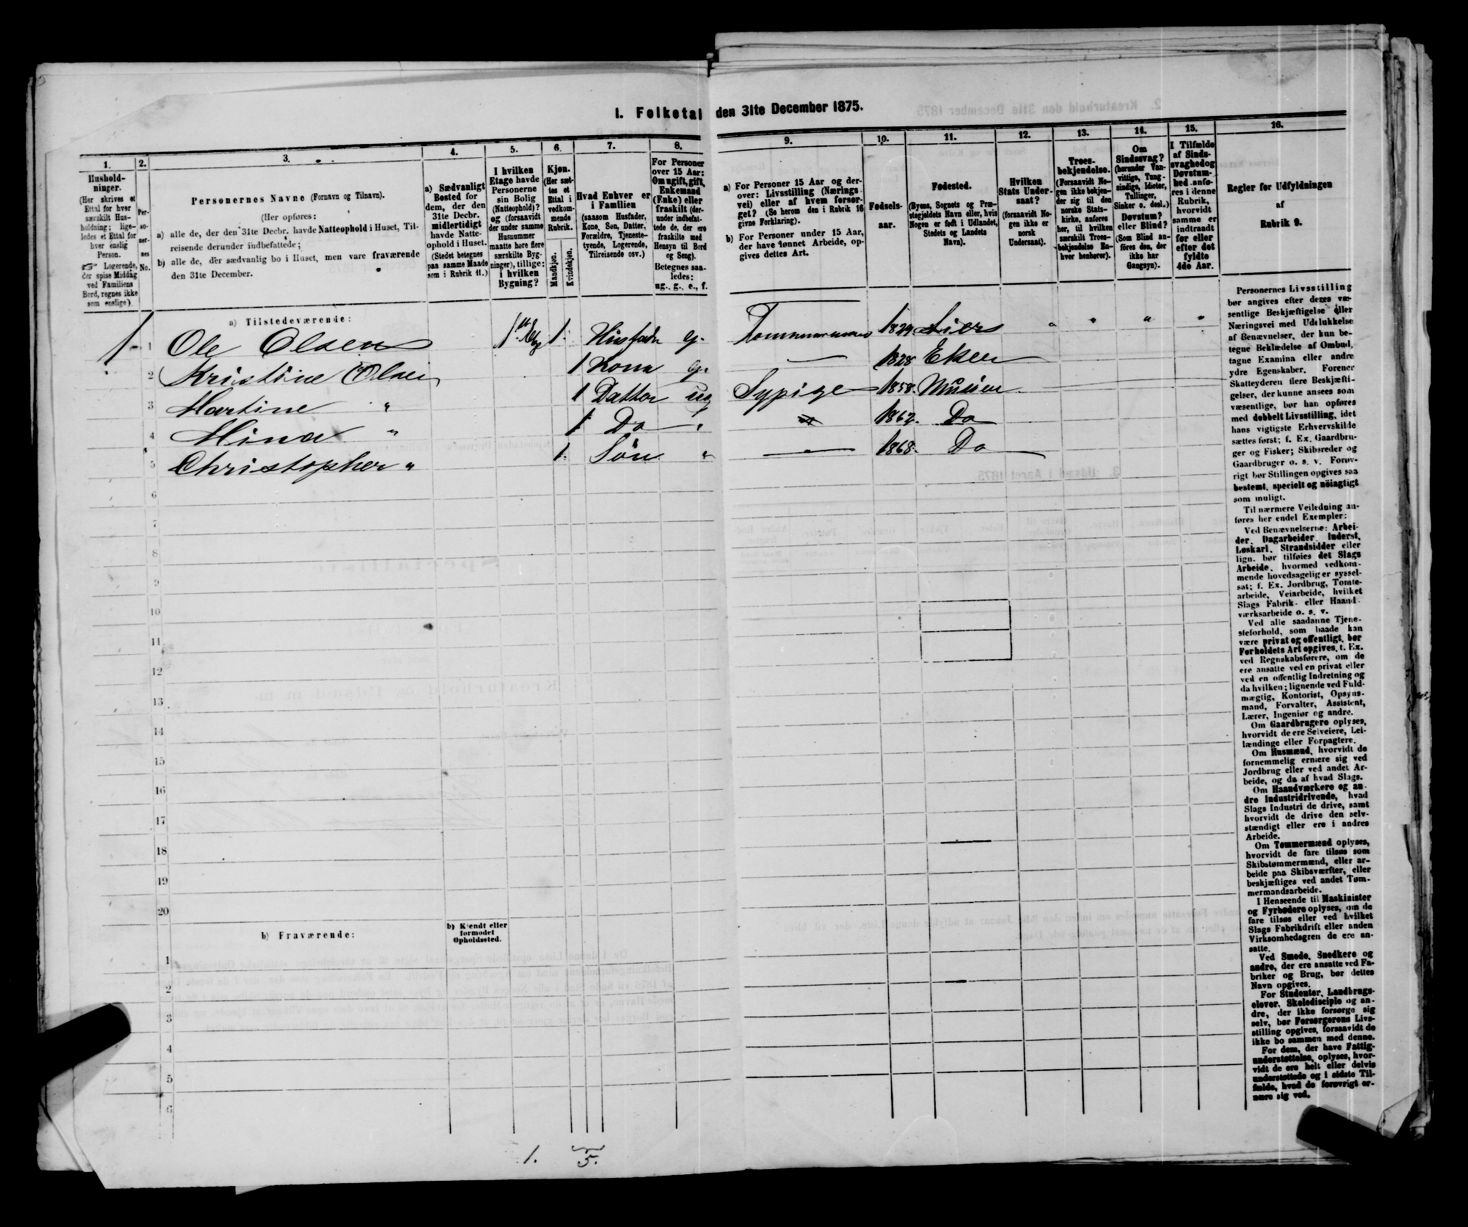 I. Folketal den 31te December 1875.
1. 2. 3. 4. 5. 6. 7. 8. 9. 10. 11. 12. 13. 14. 15. 16.
Husholdninger.
(Her skrives et
Ettal for hver
særskilt Husholdning;
ligeledes et Ettal for
hver enslig
Person.
Logerende,
der spise Middag
ved Familiens
Bord, regnes ikke
som enslige).
Personernes No.
Personernes Navne (Fornavn og Tilnavn).
(Her opføres:
a) alle de, der den 31te Decbr. havde Natteophold i Huset, Tilreisende derunder indbefattede;
b) alle de, der sædvanlig bo i Huset, men vare fraværende
den 31te December.
a) Sædvanligt
Bosted for
dem, der den
31te Decbr.
midlertidigt
havde Natteophold i Huset.
(Stedet betegnes
paa samme Maade
som i Rubrik 11.)
I hvilken
Etage havde
Personerne
sin Bolig
(Natteophold)?
og
(forsaavidt
der under samme
Husnummer
maatte høre flere
særskilte Bygninger), tillige:
i hvilken
Bygning?
Kjøn.
(Her sættes et
Ettal i
vedkommende
Rubrik.
Mandkjøn.
Kvindekjøn.
Hvad Enhver er
i Familien
(saasom Husfader,
Kone, Søn, Datter,
Forældre, Tjenestetyende, Logerende,
Tilreisende osv.)
For Personer
over 15 Aar:
Om ugift, gift,
Enkemand
(Enke) eller
fraskilt (derunder indbefattede de, der ere
fraskilte med
Hensyn til Bord
og Seng).
Betegnes saaledes:
ug., g., e., f.
a) For Personer 15 Aar og derover: Livsstilling (Næringsvei) eller af hvem forsørget? (Se herom den i Rubrik 16
givne Forklaring).
b) For Personer under 15 Aar,
der have lønnet Arbeide, opgives dettes Art.
Fødselsaar.
Fødested.
(Byens, Sognets og Præstegjeldets Navn eller, hvis
Nogen er født i Udlandet,
Stedets og Landets
Navn).
Hvilken
Stats Undersaat?
(forsaavidt Nogen ikke er
norsk
Undersaat).
Troesbekjendelse.
(Forsaavidt Nogen ikke bekjender sig til den
norske Statskirke, anføres
her, til hvilken
særskilt Troesbekjendelse Enhver henhører).
Om
Sindssvag?
(herunder Vanvittige, Tungsindige, Idioter,
Tullinger,
Sinker o. desl.)
Døvstum?
eller Blind?
(Som Blind anføres den, der
ikke har
Gangsyn).
I Tilfælde
af Sindssvaghed og
Døvstumhed anføres i denne
Rubrik,
hvorvidt
samme er
indtraadt
før eller
efter det
fyldte
4de Aar.
Regler for Udfyldningen
af
Rubrik 9.
a) Tilstedeværende:
1 1 Ole Olsen 1ste Etg 1. Husfader g. Tømmermand 1829 Lier " " " "
2 Kristine Olsen 1 Kone g. — 1828 Eker
3 Martine " 1 Datter ug Sypige 1858 Modum
4 Mina " 1 Do " 1862 Do
5 Christopher " 1. Søn " — 1868. Do
6
7
8
9
10
11
12
13
14
15
16
17
18
19
20
b) Fraværende:
b) Kjendt eller
formodet
Opholdssted.
1
2
3
4
5
6
1. 5.
Personernes Livsstilling
bør angives efter deres væsentlige Beskjæftigelse eller
Næringsvei med Udelukkelse
af Benævnelser, der kun betegne Beklædelse af Ombud,
tagne Examina eller andre
ydre Egenskaber. Forener
Skatteyderen flere Beskjæftigelser, der kunne ansees som
væsentlige, bør han opføres
med dobbelt Livsstilling, idet
hans vigtigste Erhvervskilde
sættes først; f. Ex. Gaardbruger og Fisker; Skibsreder og
Gaardbruger o. s. v. Forøvrigt bør Stillingen opgives saa
bestemt, specielt og nøiagtigt
som muligt.
Til nærmere Veiledning anføres her endel Exempler:
Ved Benævnelserne: Arbeider, Dagarbeider, Inderst,
Løskarl, Strandsidder eller
lign. bør tilføies det Slags
Arbeide, hvormed vedkommende hovedsagelig er sysselsat; f. Ex. Jordbrug, Tomtearbeide, Veiarbeide, hvilket
Slags Fabrik- eller Haandværksarbeide o. s. v.
Ved alle saadanne Tjenesteforhold, som baade kan
være privat og offentligt, bør
Forholdets Art opgives, f. Ex.
ved Regnskabsførere, om de
ere ansatte ved en privat eller
ved en offentlig Indretning og
da hvilken; lignende ved Fuldmægtig, Kontorist, Opsynsmand, Forvalter, Assistent,
Lærer, Ingeniør og andre.
Om Gaardbrugere oplyses,
hvorvidt de ere Selveiere, Leilændinge eller Forpagtere.
Om Husmænd, hvorvidt de
fornemmelig ernære sig ved
Jordbrug eller ved andet Arbeide, og da af hvad Slags.
Om Haandværkere og andre Industridrivende, hvad
Slags Industri de drive, samt
hvorvidt de drive den selvstændigt eller ere i andres
Arbeide.
Om Tømmermænd oplyses,
hvorvidt de fare tilsøs som
Skibstømmermænd, eller arbeide paa Skibsværfter, eller
beskjæftiges ved andet Tømmermandsarbeide.
I Henseende til Maskinister
og Fyrbødere oplyses, om de
fare tilsøs eller ved hvilket
Slags Fabrikdrift eller anden
Virksomhedsgren de ere ansatte.
Ved Smede, Snedkere og
andre, der ere ansatte ved Fabriker og Brug, bør dettes
Navn opgives.
For Studenter, Landbrugselever, Skoledisciple og andre, der ikke forsørge sig
selv, bør Forsørgerens Livsstilling opgives, forsaavidt de
ikke bo sammen med denne.
For dem, der have Fattigunderstøttelse, oplyses, hvorvidt de ere helt eller delvis
understøttede og i sidste Tilfælde, hvad de forøvrigt ernære sig ved.